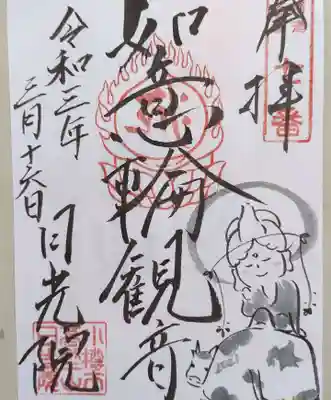 奉拝
如意輪観音
令和三年
三月十六日
日光院